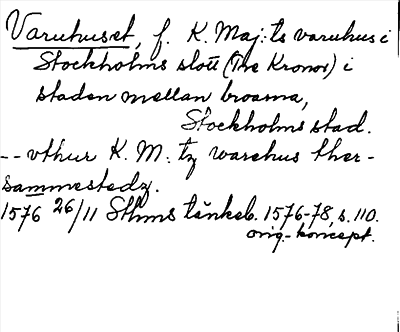 Varuhuset, f. K. Maj:ts varuhus i
Stockholms slott (Tre Kronor) i
staden mellan broarna,
Stockholms stad.
-- vthur K. M. tz warehus ther-
sammestedz.
1576 26/11 Sthms tänkeb. 1576-78, s. 110.
orig.-koncept.